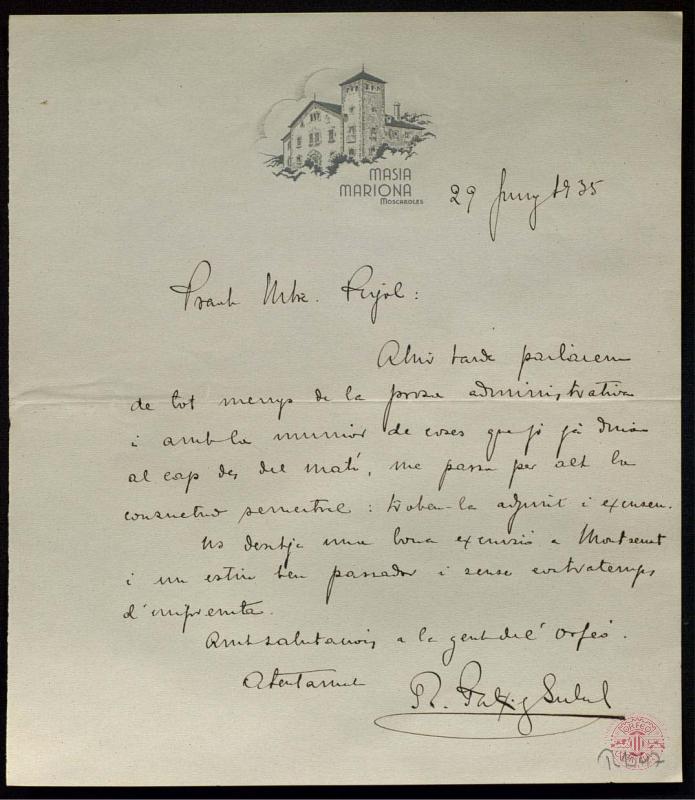 MASIA
MARIONA
MOSCAROLES
29 juny 1935
Pujol:
Ahir tarde parlàrem
de tot menys de la prosa administrativa
i amb la munior de coses que jo ja duia
al cap des del matí, me passà per alt la
consuetud semestral: trobeu-la adjunt i excuseu.
Us desitja una bona excursió a Montserrat
i un estiu ben passador i sense contratemps
d'impremta.
Amb salutacions a la gent de l'Orfeó.
Atentament
R. Patxot
ORFEÓ